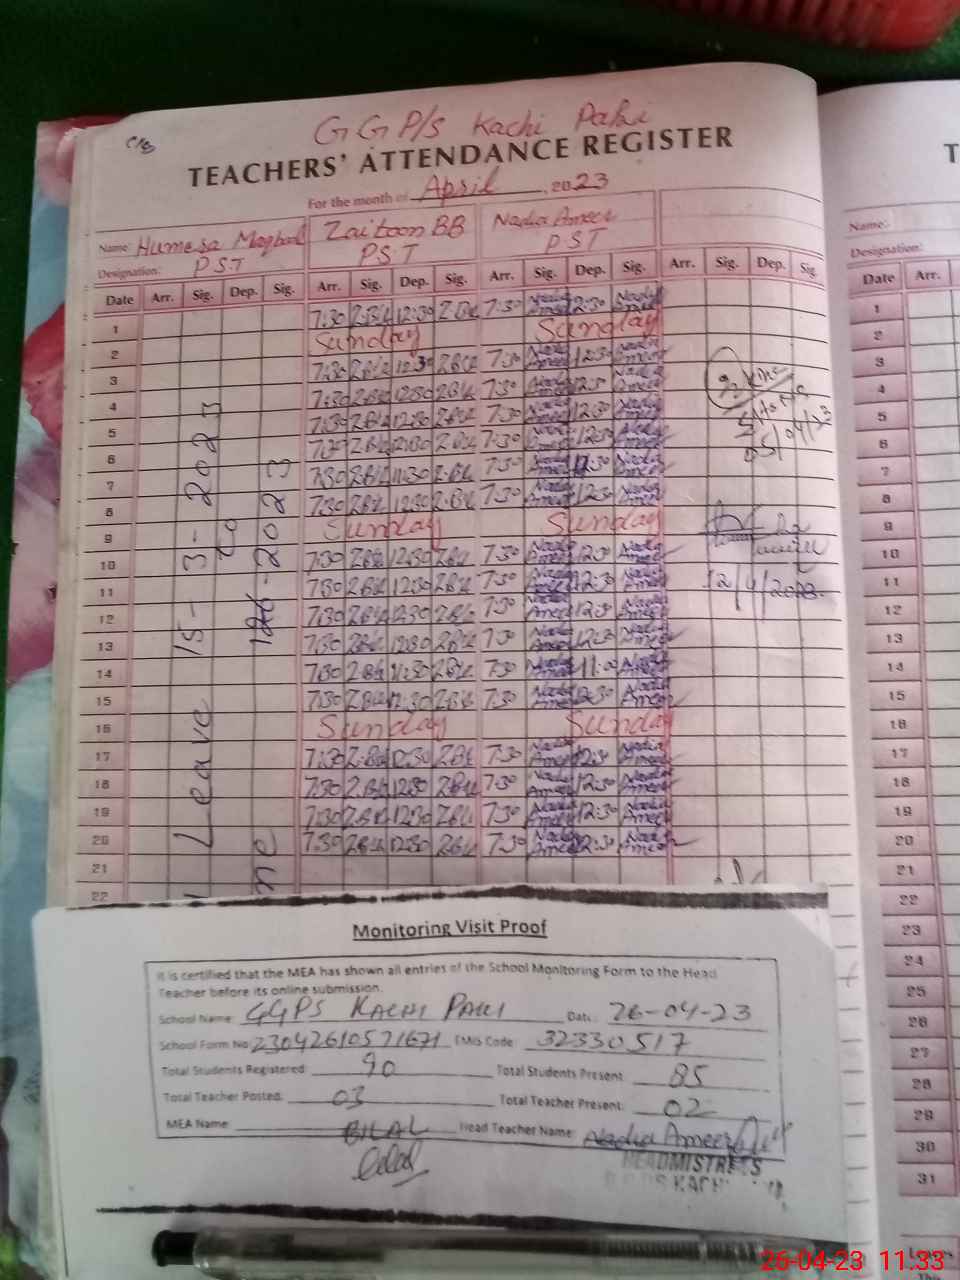 GGP/S Kachi Paki
TEACHERS' ATTENDANCE REGISTER
For the month of April, 2023
Name: Humera Maqbool Zaitoon BB Nadia Ameer
Designation: P.S.T P.S.T P S T
Date Arr. Sig. Dep. Sig. Arr. Sig. Dep. Sig. Arr. Sig. Dep. Sig. Arr. Sig. Dep. Sig.
1 7:30 Z.Bk 12:30 Z.Bk 7:30 Nadia Ameer 12:30 Nadia Ameer
2 Sunday Sunday
3 7:30 Z.Bk 12:30 Z.Bk 7:30 Nadia Ameer 12:30 Nadia Ameer
4 7:30 Z.Bk 12:30 Z.Bk 7:30 Nadia Ameer 12:30 Nadia Ameer
5 7:30 Z.Bk 12:30 Z.Bk 7:30 Nadia Ameer 12:30 Nadia Ameer
6 7:30 Z.Bk 12:30 Z.Bk 7:30 Nadia Ameer 12:30 Nadia Ameer
7 7:30 Z.Bk 11:30 Z.Bk 7:30 Nadia Ameer 11:30 Nadia Ameer
8 7:30 Z.Bk 12:30 Z.Bk 7:30 Nadia Ameer 12:30 Nadia Ameer
9 Sunday Sunday
10 7:30 Z.Bk 12:30 Z.Bk 7:30 Nadia Ameer 12:30 Nadia Ameer
11 7:30 Z.Bk 12:30 Z.Bk 7:30 Nadia Ameer 12:30 Nadia Ameer
12 7:30 Z.Bk 12:30 Z.Bk 7:30 Nadia Ameer 12:30 Nadia Ameer
13 7:30 Z.Bk 12:30 Z.Bk 7:30 Nadia Ameer 12:30 Nadia Ameer
14 7:30 Z.Bk 11:30 Z.Bk 7:30 Nadia Ameer 11:00 Nadia Ameer
15 7:30 Z.Bk 12:30 Z.Bk 7:30 Nadia Ameer 12:30 Nadia Ameer
16 Sunday Sunday
17 7:30 Z.Bk 12:30 Z.Bk 7:30 Nadia Ameer 12:30 Nadia Ameer
18 7:30 Z.Bk 12:30 Z.Bk 7:30 Nadia Ameer 12:30 Nadia Ameer
19 7:30 Z.Bk 12:30 Z.Bk 7:30 Nadia Ameer 12:30 Nadia Ameer
20 7:30 Z.Bk 12:30 Z.Bk 7:30 Nadia Ameer 12:30 Nadia Ameer
21
22
Leave 15-3-2023
to
05/04/23
12/4/2023
Monitoring Visit Proof
It is certified that the MEA has shown all entries of the School Monitoring Form to the Head
Teacher before its online submission.
School Name: GGPS KACHI PAKI Date: 26-04-23
School Form No: 23042610571671 EMIS Code: 32330517
Total Students Registered: 90 Total Students Present: 85
Total Teacher Posted: 03 Total Teacher Present: 02
MEA Name: BILAL Head Teacher Name: Nadia Ameer
HEADMISTRESS
Name:
Designation:
Date Arr.
1
2
3
4
5
6
7
8
9
10
11
12
13
14
15
16
17
18
19
20
21
22
23
24
25
26
27
28
29
30
31
26-04-23 11:33